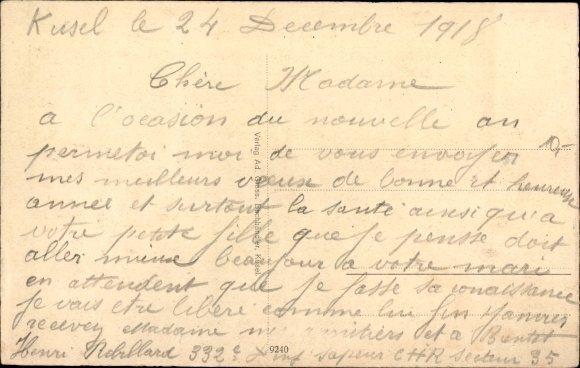 Kusel le 24 Decembre 1918
Chère Madame
a l'ocasion du nouvelle an
permetoi moi de vous envoyer
10,-
mes meilleurs vœux de bonne et heureuse
année et surtout la santé ainsi qu'a
votre petite fille que je pensse doit
aller mieux beaucoup a votre mari
en attendent que je fasse sa conaissance
je vais etre libéré comme lui fin Janvier
recevez Madame mes amitiers et a Bientot
Henri Robillard 332e D inf sapeur CHR secteur 35
Verlag Ad. Kusel
9240